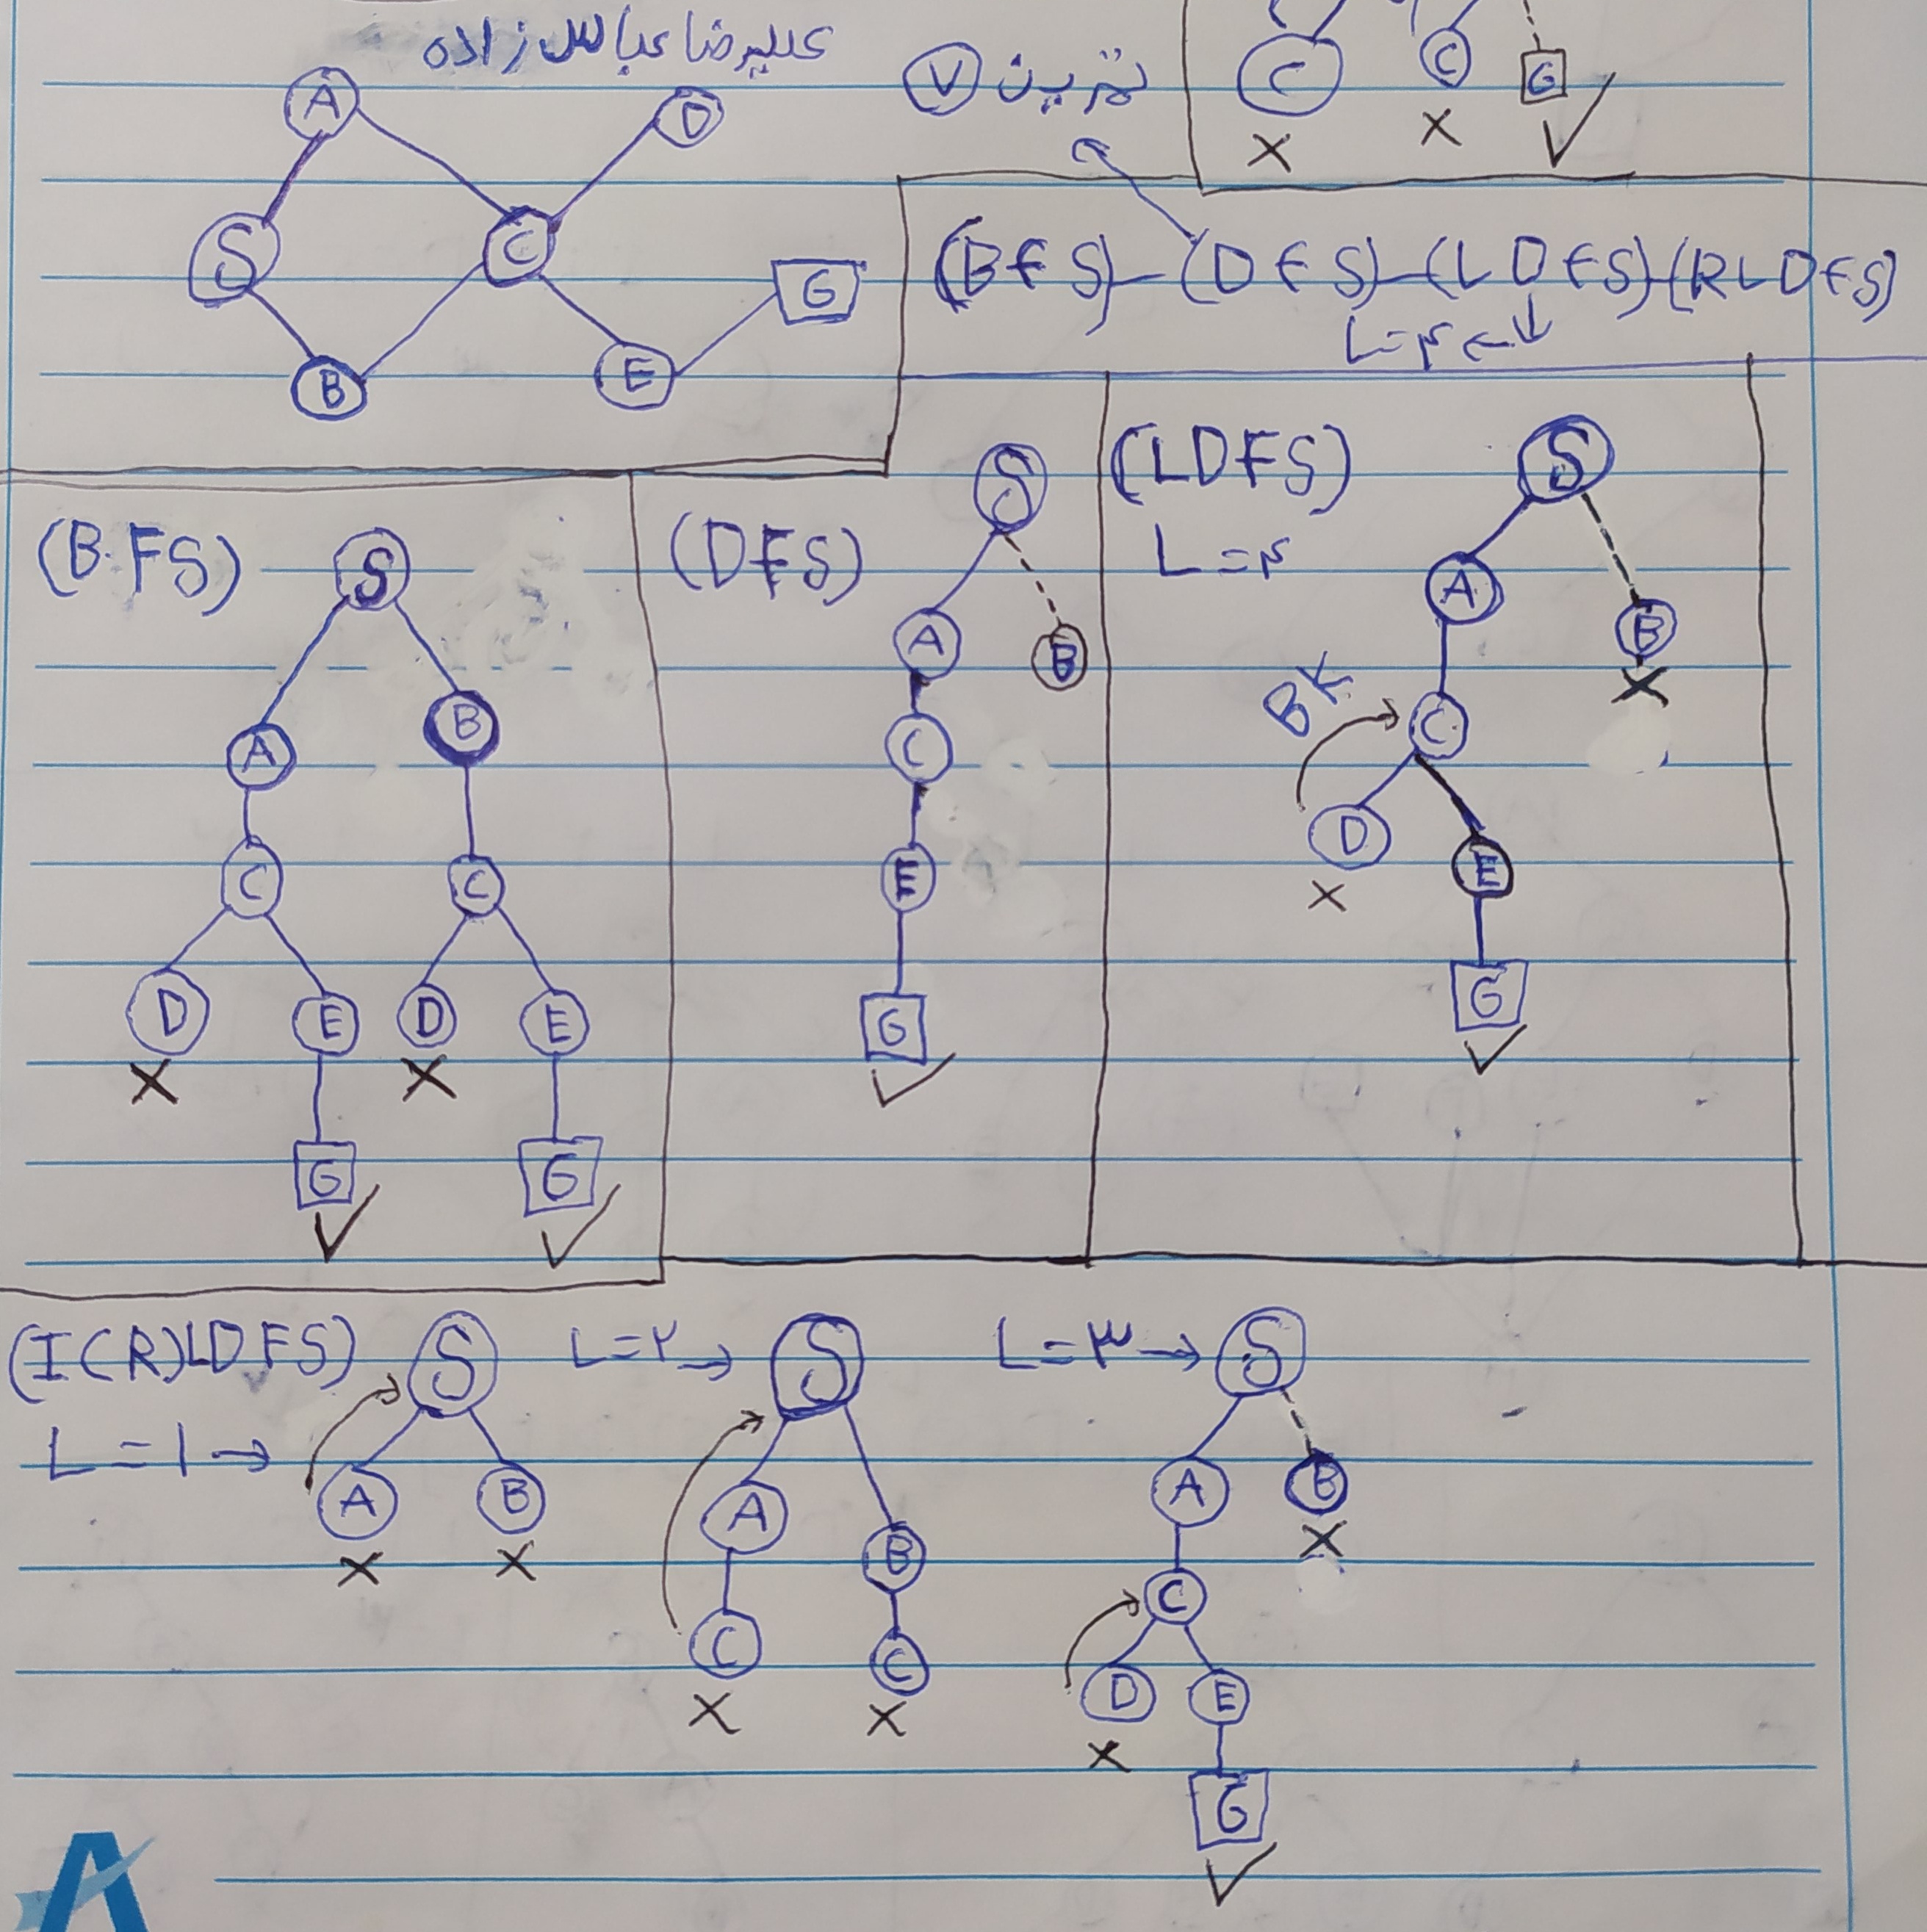 علیرضا عباس زاده
تمرین ۷
C C G
A D
S C
G
B E
(BFS)-(DFS)-(LDFS)(RLDFS)
L=۴
(BFS)
S
A B
C C
D E D E
G G
(DFS)
S
A B
C
E
G
(LDFS)
L=۴
S
A B
BK
C
D E
G
(I(R)LDFS)
L=1→
S
A B
L=۲→
S
A
B
C C
L=۳→
S
A B
C
D E
G